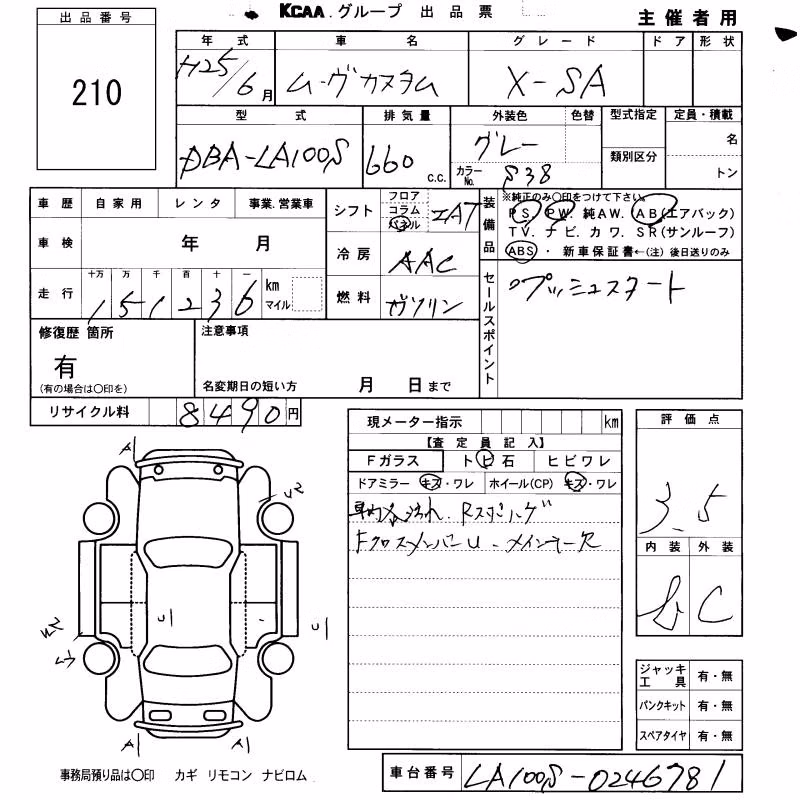 KCAA.グループ 出品票
主催者用
出品番号
210
年式 車名 グレード ドア 形状
H25/6月 ムーヴカスタム X-SA
型式 排気量 外装色 色替 型式指定 定員・積載
DBA-LA100S 660 c.c. グレー 類別区分 名
カラーNo. S38 トン
車歴 自家用 レンタ 事業.営業車
シフト フロア コラム パネル IAT
装備品 ※純正のみ○印をつけて下さい。
PS, PW, 純AW. AB(エアバック)
TV. ナビ. カワ. SR(サンルーフ)
ABS ・ 新車保証書←(注) 後日送りのみ
車検 年 月
冷房 AAC
走行 十万 万 千 百 十 一 km マイル
151236
燃料 ガソリン
セールスポイント
○プッシュスタート
修復歴 箇所
有
(有の場合は○印を)
注意事項
名変期日の短い方 月 日まで
リサイクル料 8490円
現メーター指示 km
【査定員記入】
Fガラス トビ石 ヒビワレ
ドアミラー キズ・ワレ ホイール(CP) キズ・ワレ
車内 汚れ. R
FクロスメンバーU. メインキー欠
評価点
3.5
内装 外装
b C
A U2
U
U
A A
ジャッキ工具 有・無
パンクキット 有・無
スペアタイヤ 有・無
事務局預り品は○印 カギ リモコン ナビロム
車台番号 LA100S-0246781